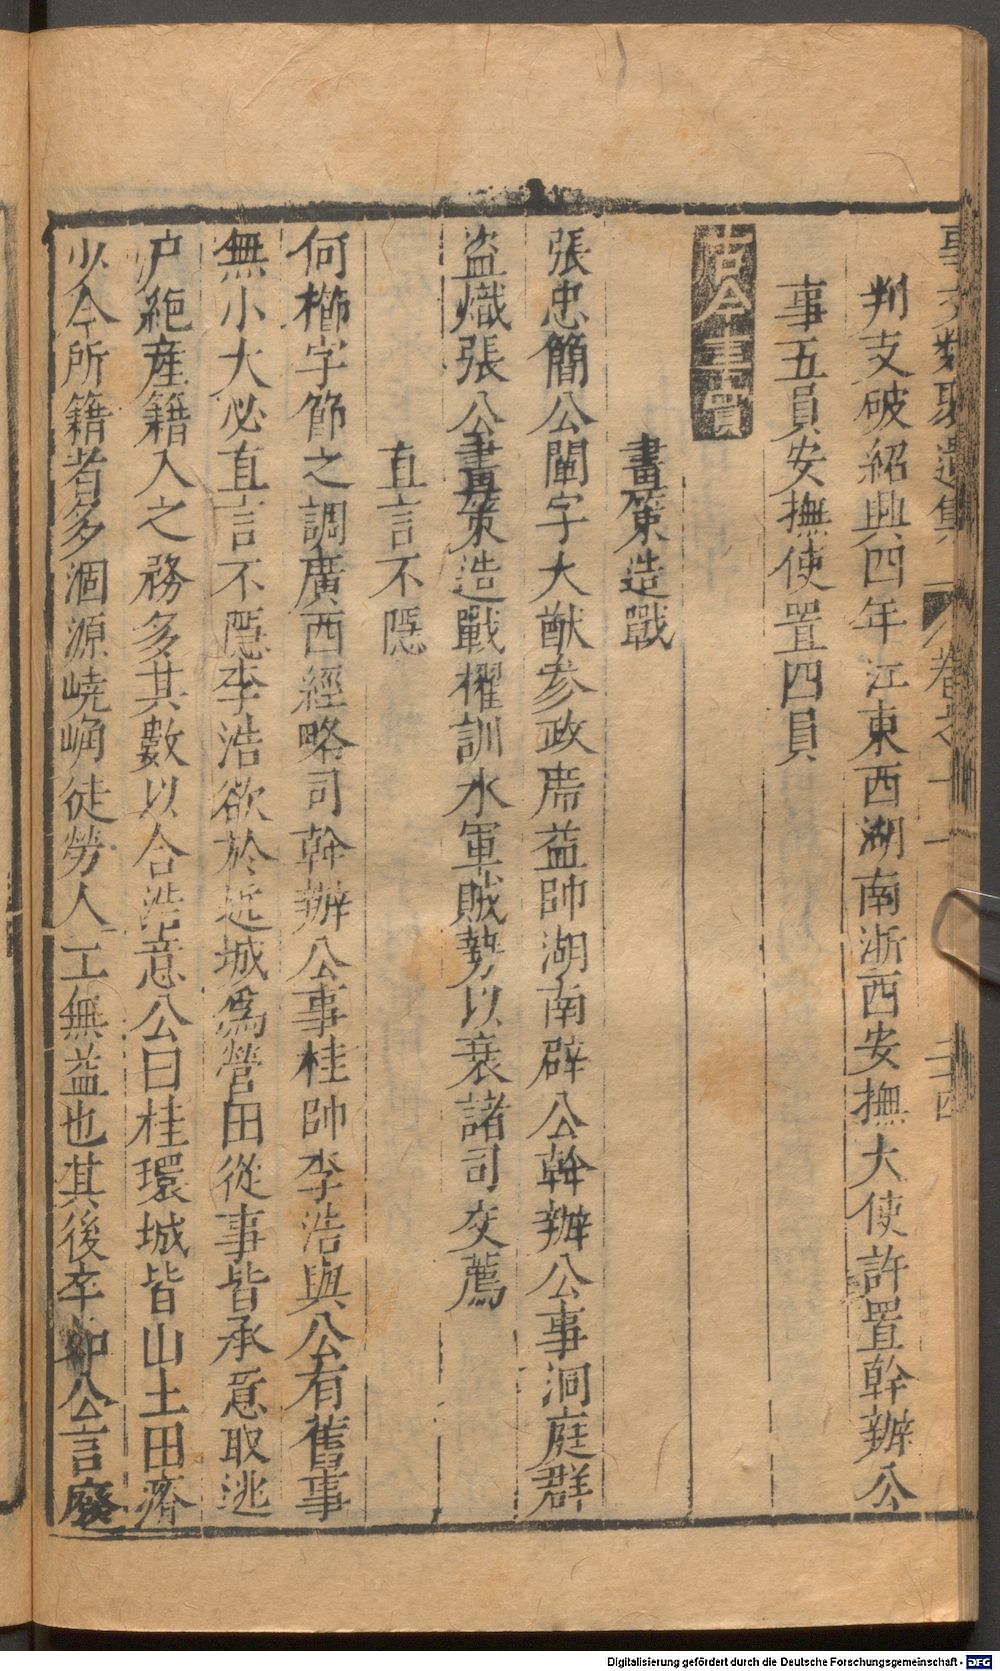 事文類聚遺集 卷之十一 二十四
判支破紹興四年江東西湖南浙西安撫大使許置幹辦公
事五員安撫使置四員
古今事實
畫策造戰
張忠簡公闡字大猷參政席益帥湖南辟公幹辦公事洞庭群
盜熾張公畫策造戰櫂訓水軍賊勢以衰諸司交薦
直言不隱
何櫛字節之調廣西經略司幹辦公事桂帥李浩與公有舊事
無小大必直言不隱李浩欲於近城爲營田從事皆承意取逃
户絶産籍入之務多其數以合浩意公曰桂環城皆山土田瘠
少今所籍者多涸源嶢崅徒勞人工無益也其後卒如公言廢
Digitalisierung gefördert durch die Deutsche Forschungsgemeinschaft - DFG